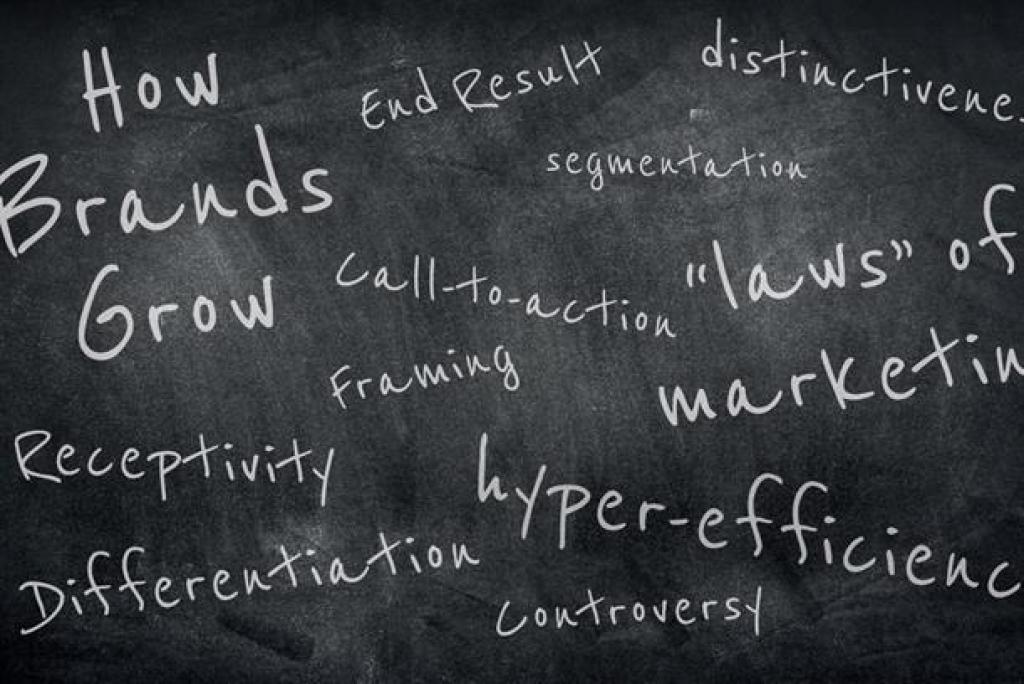 How
Brands
Grow
End Result
distinctivenes
segmentation
Call-to-action
"laws" of
marketin
Framing
Receptivity
hyper-efficienc
Differentiation
Controversy